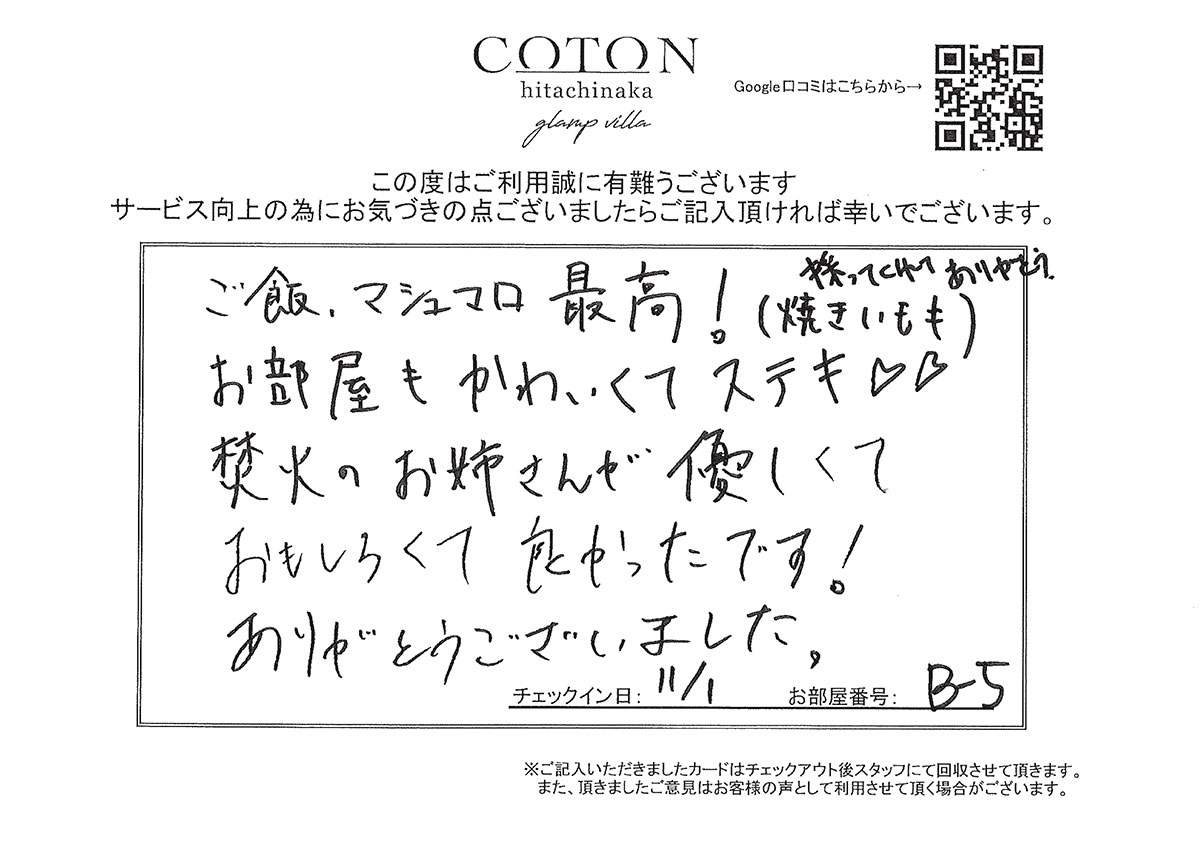 COTON
hitachinaka
glamp villa
Google口コミはこちらから→
この度はご利用誠に有難うございます
サービス向上の為にお気づきの点ございましたらご記入頂ければ幸いでございます。
ってくれて ありがとう
ご飯、マシュマロ 最高!(焼きいもも)
お部屋も かわいくて ステキ♡♡
焚火の お姉さんが 優しくて
おもしろくて 良かったです!
ありがとうございました。
チェックイン日: 11/1 お部屋番号: B-5
※ご記入いただきましたカードはチェックアウト後スタッフにて回収させて頂きます。
また、頂きましたご意見はお客様の声として利用させて頂く場合がございます。